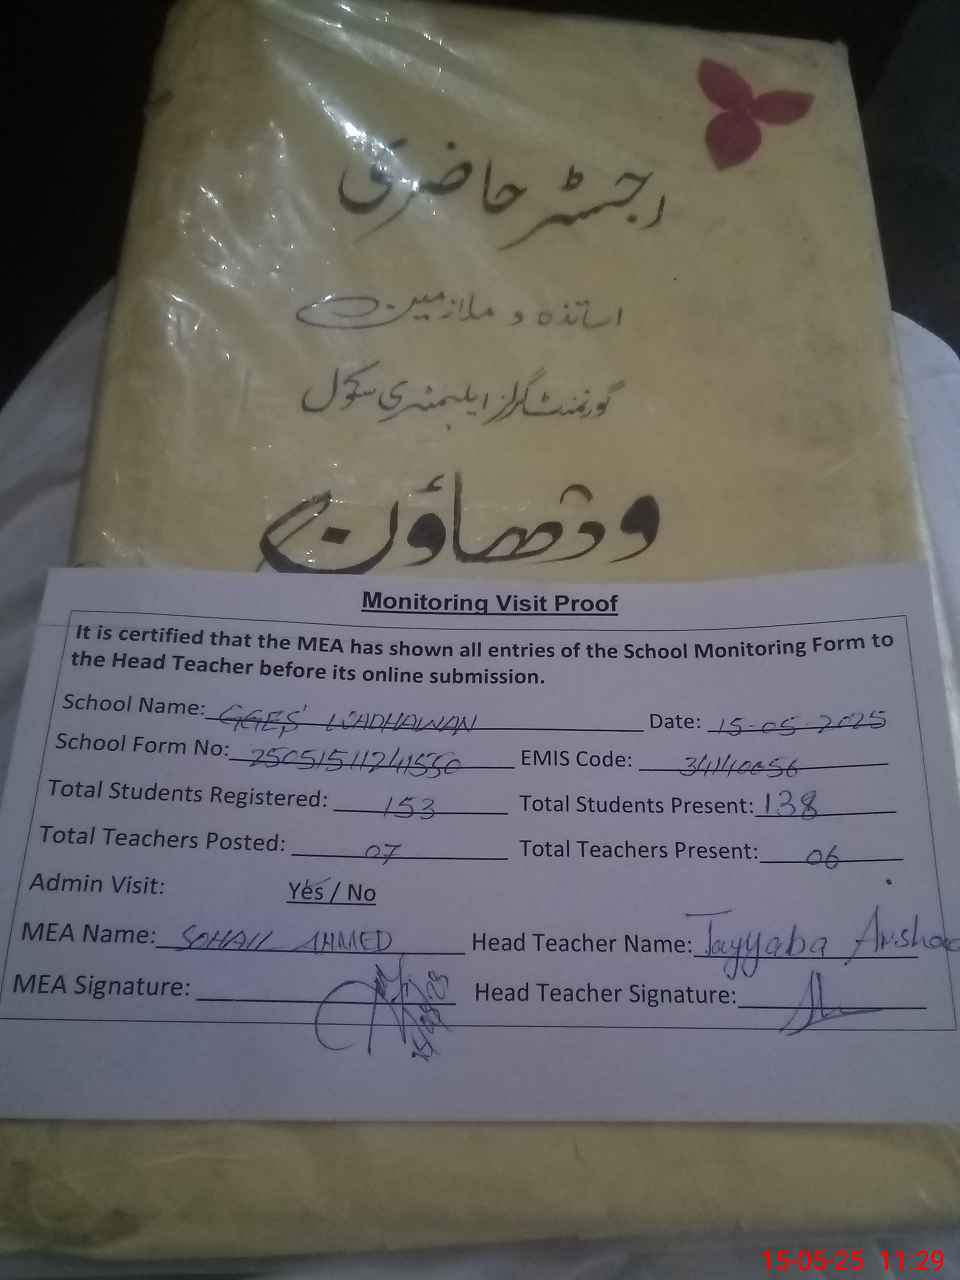 رجسٹر حاضری
اساتذہ و ملازمین
گورنمنٹ گرلز ایلیمنٹری سکول
ودھاؤن
Monitoring Visit Proof
It is certified that the MEA has shown all entries of the School Monitoring Form to
the Head Teacher before its online submission.
School Name: GGES WADHAWAN Date: 15-05-2025
School Form No: 25051511241550 EMIS Code: 34140056
Total Students Registered: 153 Total Students Present: 138
Total Teachers Posted: 07 Total Teachers Present: 06
Admin Visit: Yes / No
MEA Name: SOHAIL AHMED Head Teacher Name: Tayyaba Arshad
MEA Signature: Head Teacher Signature:
15-05-25 11:29